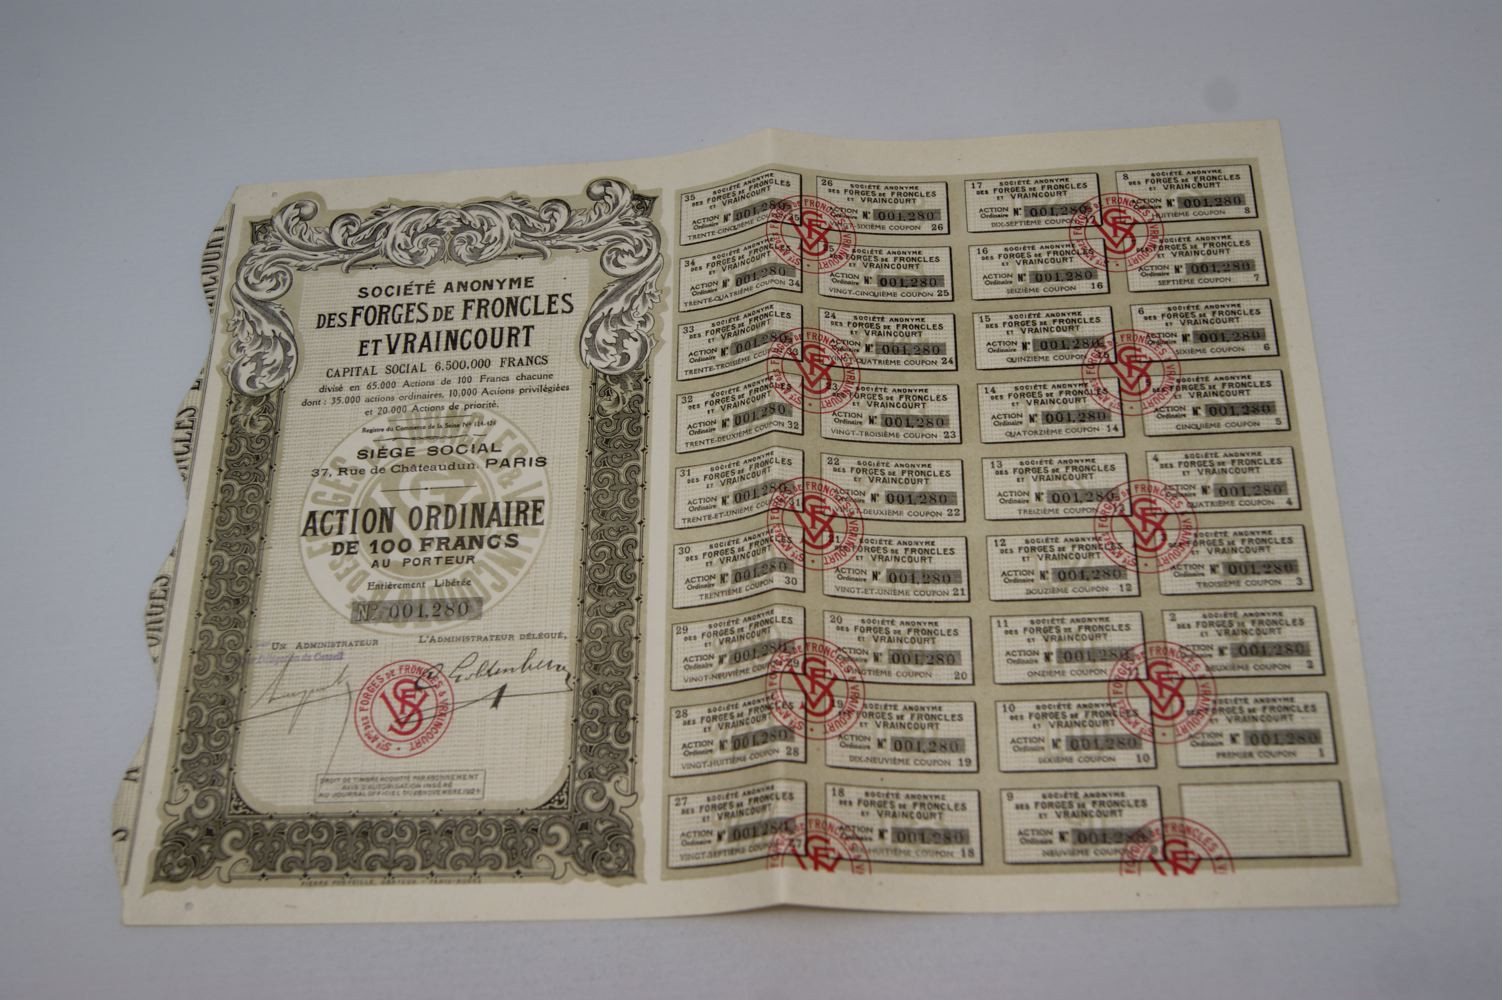 SOCIÉTÉ ANONYME
DES FORGES DE FRONCLES
ET VRAINCOURT
CAPITAL SOCIAL 6.500.000 FRANCS
divisé en 65.000 Actions de 100 Francs chacune
dont : 35.000 actions ordinaires, 10.000 Actions privilégiées
et 20.000 Actions de priorité.
Registre du Commerce de la Seine No 124-426
SIÈGE SOCIAL
37, Rue de Châteaudun, PARIS
ACTION ORDINAIRE
DE 100 FRANCS
AU PORTEUR
Entièrement Libérée
No 001,280
UN ADMINISTRATEUR
L'ADMINISTRATEUR DÉLÉGUÉ,
Délégation du Conseil
STE AME DES FORGES DE FRONCLES & VRAINCOURT
DROIT DE TIMBRE ACQUITTÉ PAR ABONNEMENT
AVIS D'AUTORISATION INSÉRÉ
AU JOURNAL OFFICIEL DU
35 SOCIÉTÉ ANONYME
DES FORGES DE FRONCLES
ET VRAINCOURT
ACTION Ordinaire No 001,280
TRENTE-CINQUIÈME COUPON 35
34 SOCIÉTÉ ANONYME
DES FORGES DE FRONCLES
ET VRAINCOURT
ACTION Ordinaire No 001,280
TRENTE-QUATRIÈME COUPON 34
33 SOCIÉTÉ ANONYME
DES FORGES DE FRONCLES
ET VRAINCOURT
ACTION Ordinaire No 001,280
TRENTE-TROISIÈME COUPON 33
32 SOCIÉTÉ ANONYME
DES FORGES DE FRONCLES
ET VRAINCOURT
ACTION Ordinaire No 001,280
TRENTE-DEUXIÈME COUPON 32
31 SOCIÉTÉ ANONYME
DES FORGES DE FRONCLES
ET VRAINCOURT
ACTION Ordinaire No 001,280
TRENTE-ET-UNIÈME COUPON 31
30 SOCIÉTÉ ANONYME
DES FORGES DE FRONCLES
ET VRAINCOURT
ACTION Ordinaire No 001,280
TRENTIÈME COUPON 30
29 SOCIÉTÉ ANONYME
DES FORGES DE FRONCLES
ET VRAINCOURT
ACTION Ordinaire No 001,280
VINGT-NEUVIÈME COUPON 29
28 SOCIÉTÉ ANONYME
DES FORGES DE FRONCLES
ET VRAINCOURT
ACTION Ordinaire No 001,280
VINGT-HUITIÈME COUPON 28
27 SOCIÉTÉ ANONYME
DES FORGES DE FRONCLES
ET VRAINCOURT
ACTION Ordinaire No 001,280
VINGT-SEPTIÈME COUPON 27
26 SOCIÉTÉ ANONYME
DES FORGES DE FRONCLES
ET VRAINCOURT
ACTION Ordinaire No 001,280
VINGT-SIXIÈME COUPON 26
25 SOCIÉTÉ ANONYME
DES FORGES DE FRONCLES
ET VRAINCOURT
ACTION Ordinaire No 001,280
VINGT-CINQUIÈME COUPON 25
24 SOCIÉTÉ ANONYME
DES FORGES DE FRONCLES
ET VRAINCOURT
ACTION Ordinaire No 001,280
VINGT-QUATRIÈME COUPON 24
23 SOCIÉTÉ ANONYME
DES FORGES DE FRONCLES
ET VRAINCOURT
ACTION Ordinaire No 001,280
VINGT-TROISIÈME COUPON 23
22 SOCIÉTÉ ANONYME
DES FORGES DE FRONCLES
ET VRAINCOURT
ACTION Ordinaire No 001,280
VINGT-DEUXIÈME COUPON 22
21 SOCIÉTÉ ANONYME
DES FORGES DE FRONCLES
ET VRAINCOURT
ACTION Ordinaire No 001,280
VINGT-ET-UNIÈME COUPON 21
20 SOCIÉTÉ ANONYME
DES FORGES DE FRONCLES
ET VRAINCOURT
ACTION Ordinaire No 001,280
VINGTIÈME COUPON 20
19 SOCIÉTÉ ANONYME
DES FORGES DE FRONCLES
ET VRAINCOURT
ACTION Ordinaire No 001,280
DIX-NEUVIÈME COUPON 19
18 SOCIÉTÉ ANONYME
DES FORGES DE FRONCLES
ET VRAINCOURT
ACTION Ordinaire No 001,280
DIX-HUITIÈME COUPON 18
17 SOCIÉTÉ ANONYME
DES FORGES DE FRONCLES
ET VRAINCOURT
ACTION Ordinaire No 001,280
DIX-SEPTIÈME COUPON
16 SOCIÉTÉ ANONYME
DES FORGES DE FRONCLES
ET VRAINCOURT
ACTION Ordinaire No 001,280
SEIZIÈME COUPON 16
15 SOCIÉTÉ ANONYME
DES FORGES DE FRONCLES
ET VRAINCOURT
ACTION Ordinaire No 001,280
QUINZIÈME COUPON 15
14 SOCIÉTÉ ANONYME
DES FORGES DE FRONCLES
ET VRAINCOURT
ACTION Ordinaire No 001,280
QUATORZIÈME COUPON 14
13 SOCIÉTÉ ANONYME
DES FORGES DE FRONCLES
ET VRAINCOURT
ACTION Ordinaire No 001,280
TREIZIÈME COUPON 13
12 SOCIÉTÉ ANONYME
DES FORGES DE FRONCLES
ET VRAINCOURT
ACTION Ordinaire No 001,280
DOUZIÈME COUPON 12
11 SOCIÉTÉ ANONYME
DES FORGES DE FRONCLES
ET VRAINCOURT
ACTION Ordinaire No 001,280
ONZIÈME COUPON 11
10 SOCIÉTÉ ANONYME
DES FORGES DE FRONCLES
ET VRAINCOURT
ACTION Ordinaire No 001,280
DIXIÈME COUPON 10
9 SOCIÉTÉ ANONYME
DES FORGES DE FRONCLES
ET VRAINCOURT
ACTION Ordinaire No 001,280
NEUVIÈME COUPON 9
8 SOCIÉTÉ ANONYME
DES FORGES DE FRONCLES
ET VRAINCOURT
ACTION Ordinaire No 001,280
HUITIÈME COUPON 8
SOCIÉTÉ ANONYME
DES FORGES DE FRONCLES
ET VRAINCOURT
ACTION Ordinaire No 001,280
SEPTIÈME COUPON 7
6 SOCIÉTÉ ANONYME
DES FORGES DE FRONCLES
ET VRAINCOURT
ACTION Ordinaire No 001,280
SIXIÈME COUPON 6
5 SOCIÉTÉ ANONYME
DES FORGES DE FRONCLES
ET VRAINCOURT
ACTION Ordinaire No 001,280
CINQUIÈME COUPON 5
4 SOCIÉTÉ ANONYME
DES FORGES DE FRONCLES
ET VRAINCOURT
ACTION Ordinaire No 001,280
QUATRIÈME COUPON 4
SOCIÉTÉ ANONYME
DES FORGES DE FRONCLES
ET VRAINCOURT
ACTION Ordinaire No 001,280
TROISIÈME COUPON 3
2 SOCIÉTÉ ANONYME
DES FORGES DE FRONCLES
ET VRAINCOURT
ACTION Ordinaire No 001,280
DEUXIÈME COUPON 2
SOCIÉTÉ ANONYME
DES FORGES DE FRONCLES
ET VRAINCOURT
ACTION Ordinaire No 001,280
PREMIER COUPON 1